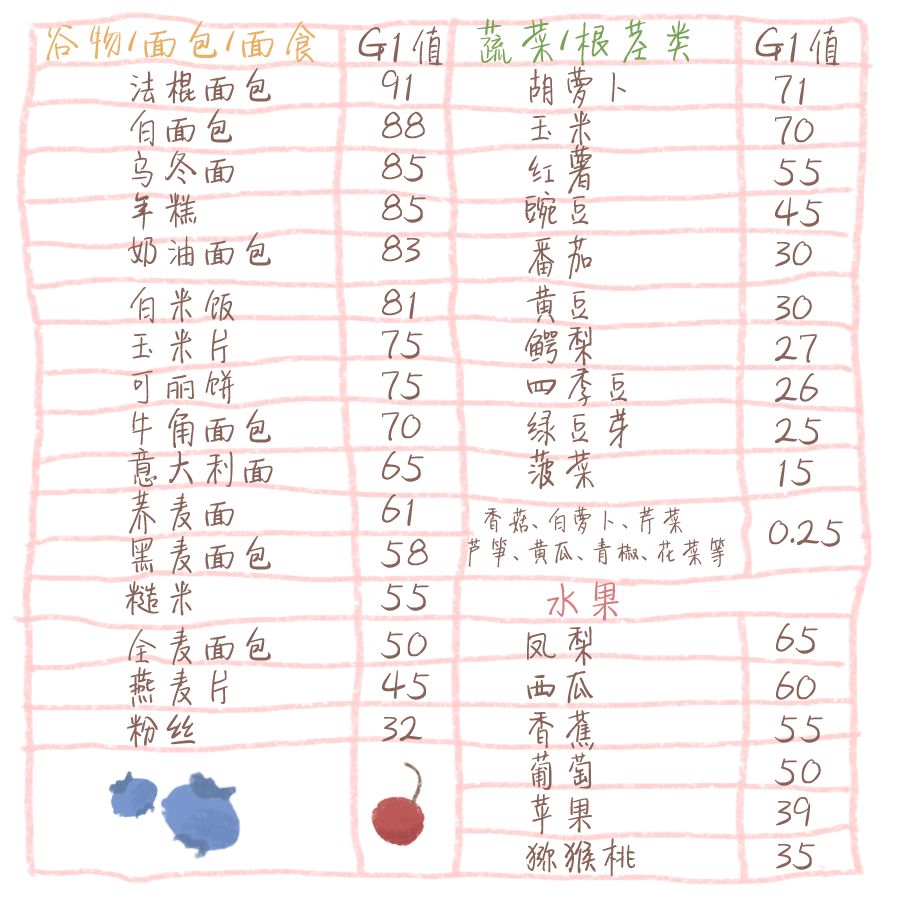 谷物/面包/面食 GI值
法棍面包 91
白面包 88
乌冬面 85
年糕 85
奶油面包 83
白米饭 81
玉米片 75
可丽饼 75
牛角面包 70
意大利面 65
荞麦面 61
黑麦面包 58
糙米 55
全麦面包 50
燕麦片 45
粉丝 32
蔬菜/根茎类 GI值
胡萝卜 71
玉米 70
红薯 55
豌豆 45
番茄 30
黄豆 30
鳄梨 27
四季豆 26
绿豆芽 25
菠菜 15
香菇、白萝卜、芹菜
芦笋、黄瓜、青椒、花菜等
0.25
水果
凤梨 65
西瓜 60
香蕉 55
葡萄 50
苹果 39
猕猴桃 35